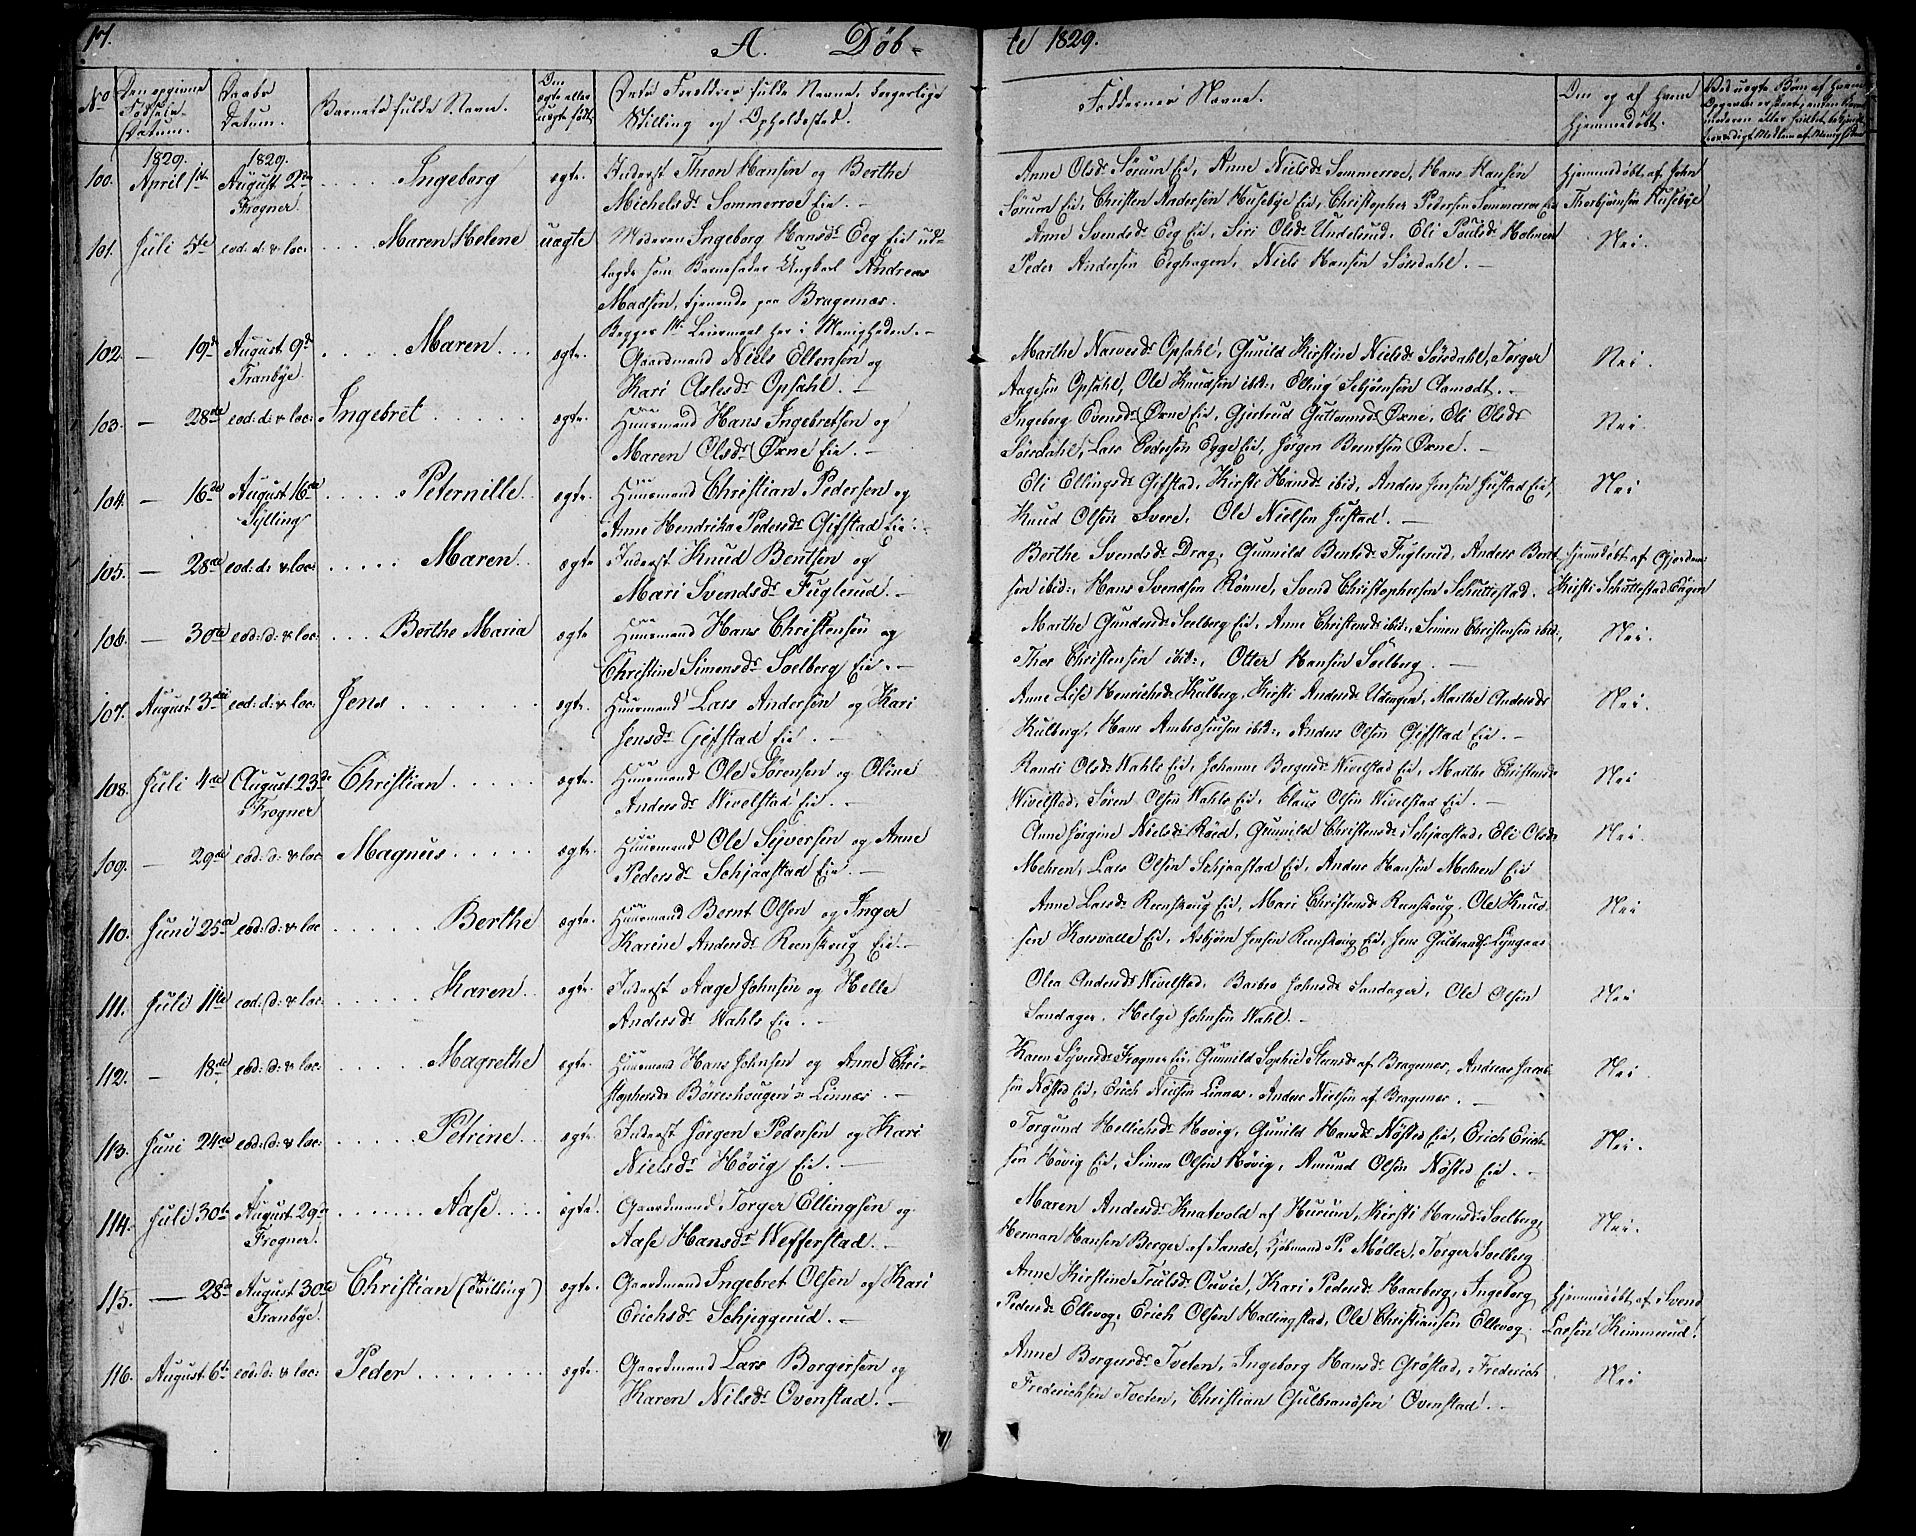 A. Døb-
te 1829.
No
Den opgivne Fødsels-Datum.
Daabs Datum.
Barnets fulde Navn.
Om ægte eller uægte født.
Dets Forældres fulde Navne, borgerlige
Stilling og Opholdssted.
Faddernes Navne.
Om og af hvem
hjemmedøbt.
1829. 1829.
100. April 1ste August 2den Ingeborg ægte. Inderst Thron Hansen og Berthe
Frogner. Michelsdr Sommerroe Eie.
Anne Olsdr Sørum Eie, Anne Nielsdr Sommerroe, Hans Hansen
Sørum Eie, Christen Andersen Husebye Eie, Christopher Pedersen Sommerroe Eie
Hjemmedøbt af John
Thorbjørnsen Husebye
101. Juli 5te eod: d: & loc: Maren Helene uægte Moderen Ingeborg Hansdr Eeg Eie ud-
lagde som Barnefader Ungkarl Andreas
Madsen, tjenende paa Bragernæs.
Begges 1ste Leiermaal her i Menigheden.
Anne Svendsdr Eeg Eie, Siri Olsdr Undelsrud, Eli Poulsdr Holmen
Peder Andersen Eeghagen, Niels Hansen Sørsdahl.
Nei.
102. — 19de August 9de Maren ægte. Gaardmand Niels Ellensen og
Tranbye. Kari Aslesdr Opsahl.
Marthe Narvesdr Opsahl, Gunild Kirstine Nielsdr Sørsdahl, Torger
Aagesen Opsahl, Ole Knudsen ibid:, Elling Asbjørnsen Aamodt.
Nei.
103. — 28de eod: d: & loc: Ingebret ægte. Huusmand Hans Ingebretsen og
Maren Olsdr Øxne Eie.
Ingeborg Evensdr Øxne Eie, Gjertrud Guttormsdr Øxne, Eli Olsdr
Sørsdahl, Lars Pedersen Egge Eie, Jørgen Berntsen Øxne.
Nei.
104. — 16de August 16de Peternille ægte. Huusmand Christian Pedersen og
Sylling Anne Hendrika Pedersdr Gifstad Eie.
Eli Ellingsdr Gifstad, Kirsti Hansdr ibid, Anders Jensen Justad Eie,
Knud Olsen Svere, Ole Nielsen Justad.
Nei
105. — 28de eod: d: & loc: Maren ægte Inderst Knud Bentsen og
Mari Svendsdr Fuglerud.
Berthe Svendsdr Drag, Gunnild Bentsdr Fuglerud, Anders Bent-
sen ibid:, Hans Svendsen Rønne, Svend Christophersen Schuttestad.
Hjemdøbt af Gjordem:
Kirsti Schuttestad Eugen
106. — 30te eod: d: & loc: Berthe Maria ægte Huusmand Hans Christensen og
Christine Simensdr Soelberg Eie.
Marthe Gundersdr Soelberg Eie, Anne Christensdr ibid:, Simen Christensen ibid:,
Thor Christensen ibid:, Otter Hansen Soelberg.
Nei.
107. August 3die eod: d: & loc: Jens ægte. Huusmand Lars Andersen og Kari
Jensdr Gifstad Eie.
Anne Lise Henrichsdr Kulberg, Kirsti Andersdr Udengen, Marthe Andersdr
Kulberg, Hans Ambrosiusen ibid:, Anders Olsen Gifstad Eie.
Nei.
108. Juli 4de August 23de Christian ægte. Huusmand Ole Sørensen og Oline
Frogner Andersdr Wivelstad Eie.
Randi Olsdr Wahls Eie, Johanne Borgersdr Wivelstad Eie, Marthe Christensdr
Wivelstad, Søren Olsen Wahls Eie, Claus Olsen Wivelstad Eie.
Nei
109. — 29de eod: d: & loc: Magnus ægte. Huusmand Ole Syversen og Anne
Pedersdr Schjaastad Eie.
Anne Jørgine Nielsdr Røed, Gunnild Christensdr Schjaastad, Eli Olsdr
Mehren, Lars Olsen Schjaastad Eie, Anders Hansen Mehren Eie
Nei.
110. Juni 25de eod: d: & loc Berthe ægte. Huusmand Bernt Olsen og Inger
Karine Andersdr Reenskoug Eie.
Anne Larsdr Reenskoug Eie, Mari Christensdr Renskoug, Ole Knud-
sen Korsvalle Eie, Asbjørn Jensen Reenskoug Eie, Jens Gulbrands. Lyngaas
Nei
111. Juli 11te eod: d: & loc: Karen ægte. Inderst Aage Johnsen og Helle
Andersdr Wahls Eie.
Olea Andersdr Wivelstad, Barbro Johnsdr Sandager, Ole Olsen
Sandager, Helge Johnsen Wahl.
Nei
112. — 18de eod: d: & loc: Magrethe ægte. Huusmand Hans Johnsen og Anne Chri-
stophersdr Børreshougen Linnæs.
Karen Syversdr Frogner Eie, Gunnild Sophie Steensdr af Bragernæs, Andreas Jacob-
sen Nøsted Eie, Erich Nielsen Linnæs, Anders Nielsen af Bragernæs.
Nei.
113. Juni 24de eod: d: & loc: Petrine ægte. Inderst Jørgen Pedersen og Kari
Nielsdr Høvig Eie.
Torgund Hellichsdr Høvig, Gunild Hansdr Nøsted Eie, Erich Erich-
sen Høvig Eie, Simen Olsen Høvig, Amund Olsen Nøsted Eie.
Nei.
114. Juli 30te August 29de Aase ægte. Gaardmand Torger Ellingsen og
Frogner. Aase Hansdr Wefferstad.
Maren Andersdr Knatvold af Hurum, Kirsti Hansdr Soelberg,
Herman Hansen Berger af Sande, Kjøbmand P. Møller, Torger Soelberg
Nei.
115. — 28de August 30te Christian (Tvilling) ægte. Gaardmand Ingebret Olsen og Kari
Tranbye. Erichsdr Schjeggerud.
Anne Kirstine Truls­dr Ouvie, Kari Pedersdr Haarberg, Ingeborg
Pedersdr Ellevog, Erich Olsen Hallingstad, Ole Christiansen Ellevog
Hjemmedøbt af Svend
Larsen Kimmerud!
116. August 6te eod: d: & loc: Peder ægte. Gaardmand Lars Borgersen og
Karen Nilsdr Ovenstad.
Anne Borgersdr Tveten, Ingeborg Hansdr Grøstad, Frederich
Frederichsen Tveten, Christian Gulbrandsen Ovenstad.
Nei